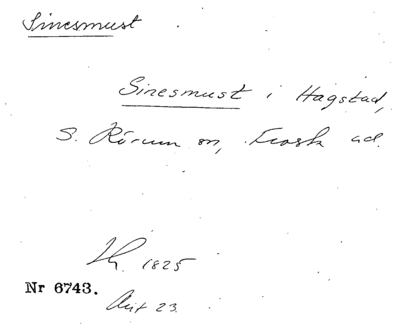 Sinesmust
Sinesmust i Hagstad,
S. Rörum sn, Frosta hd.
Lh. 1825
Nr 6743.
Avt 23.